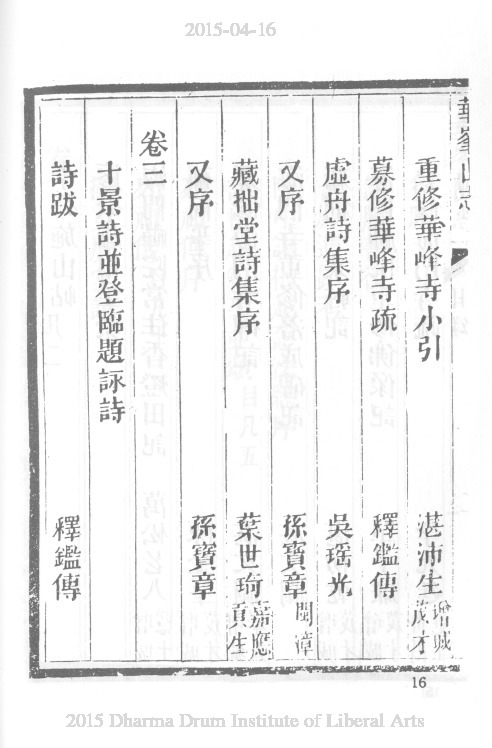 2015-04-16
華峯山志
重修華峰寺小引 湛沛生 增城茂才
募修華峰寺疏 釋鑑傳
虛舟詩集序 吳瑶光
又序 孫寶章 閩漳
藏拙堂詩集序 葉世琦 嘉應貢生
又序 孫寶章
卷三
十景詩並登臨題詠詩
詩跋 釋鑑傳
16
2015 Dharma Drum Institute of Liberal Arts